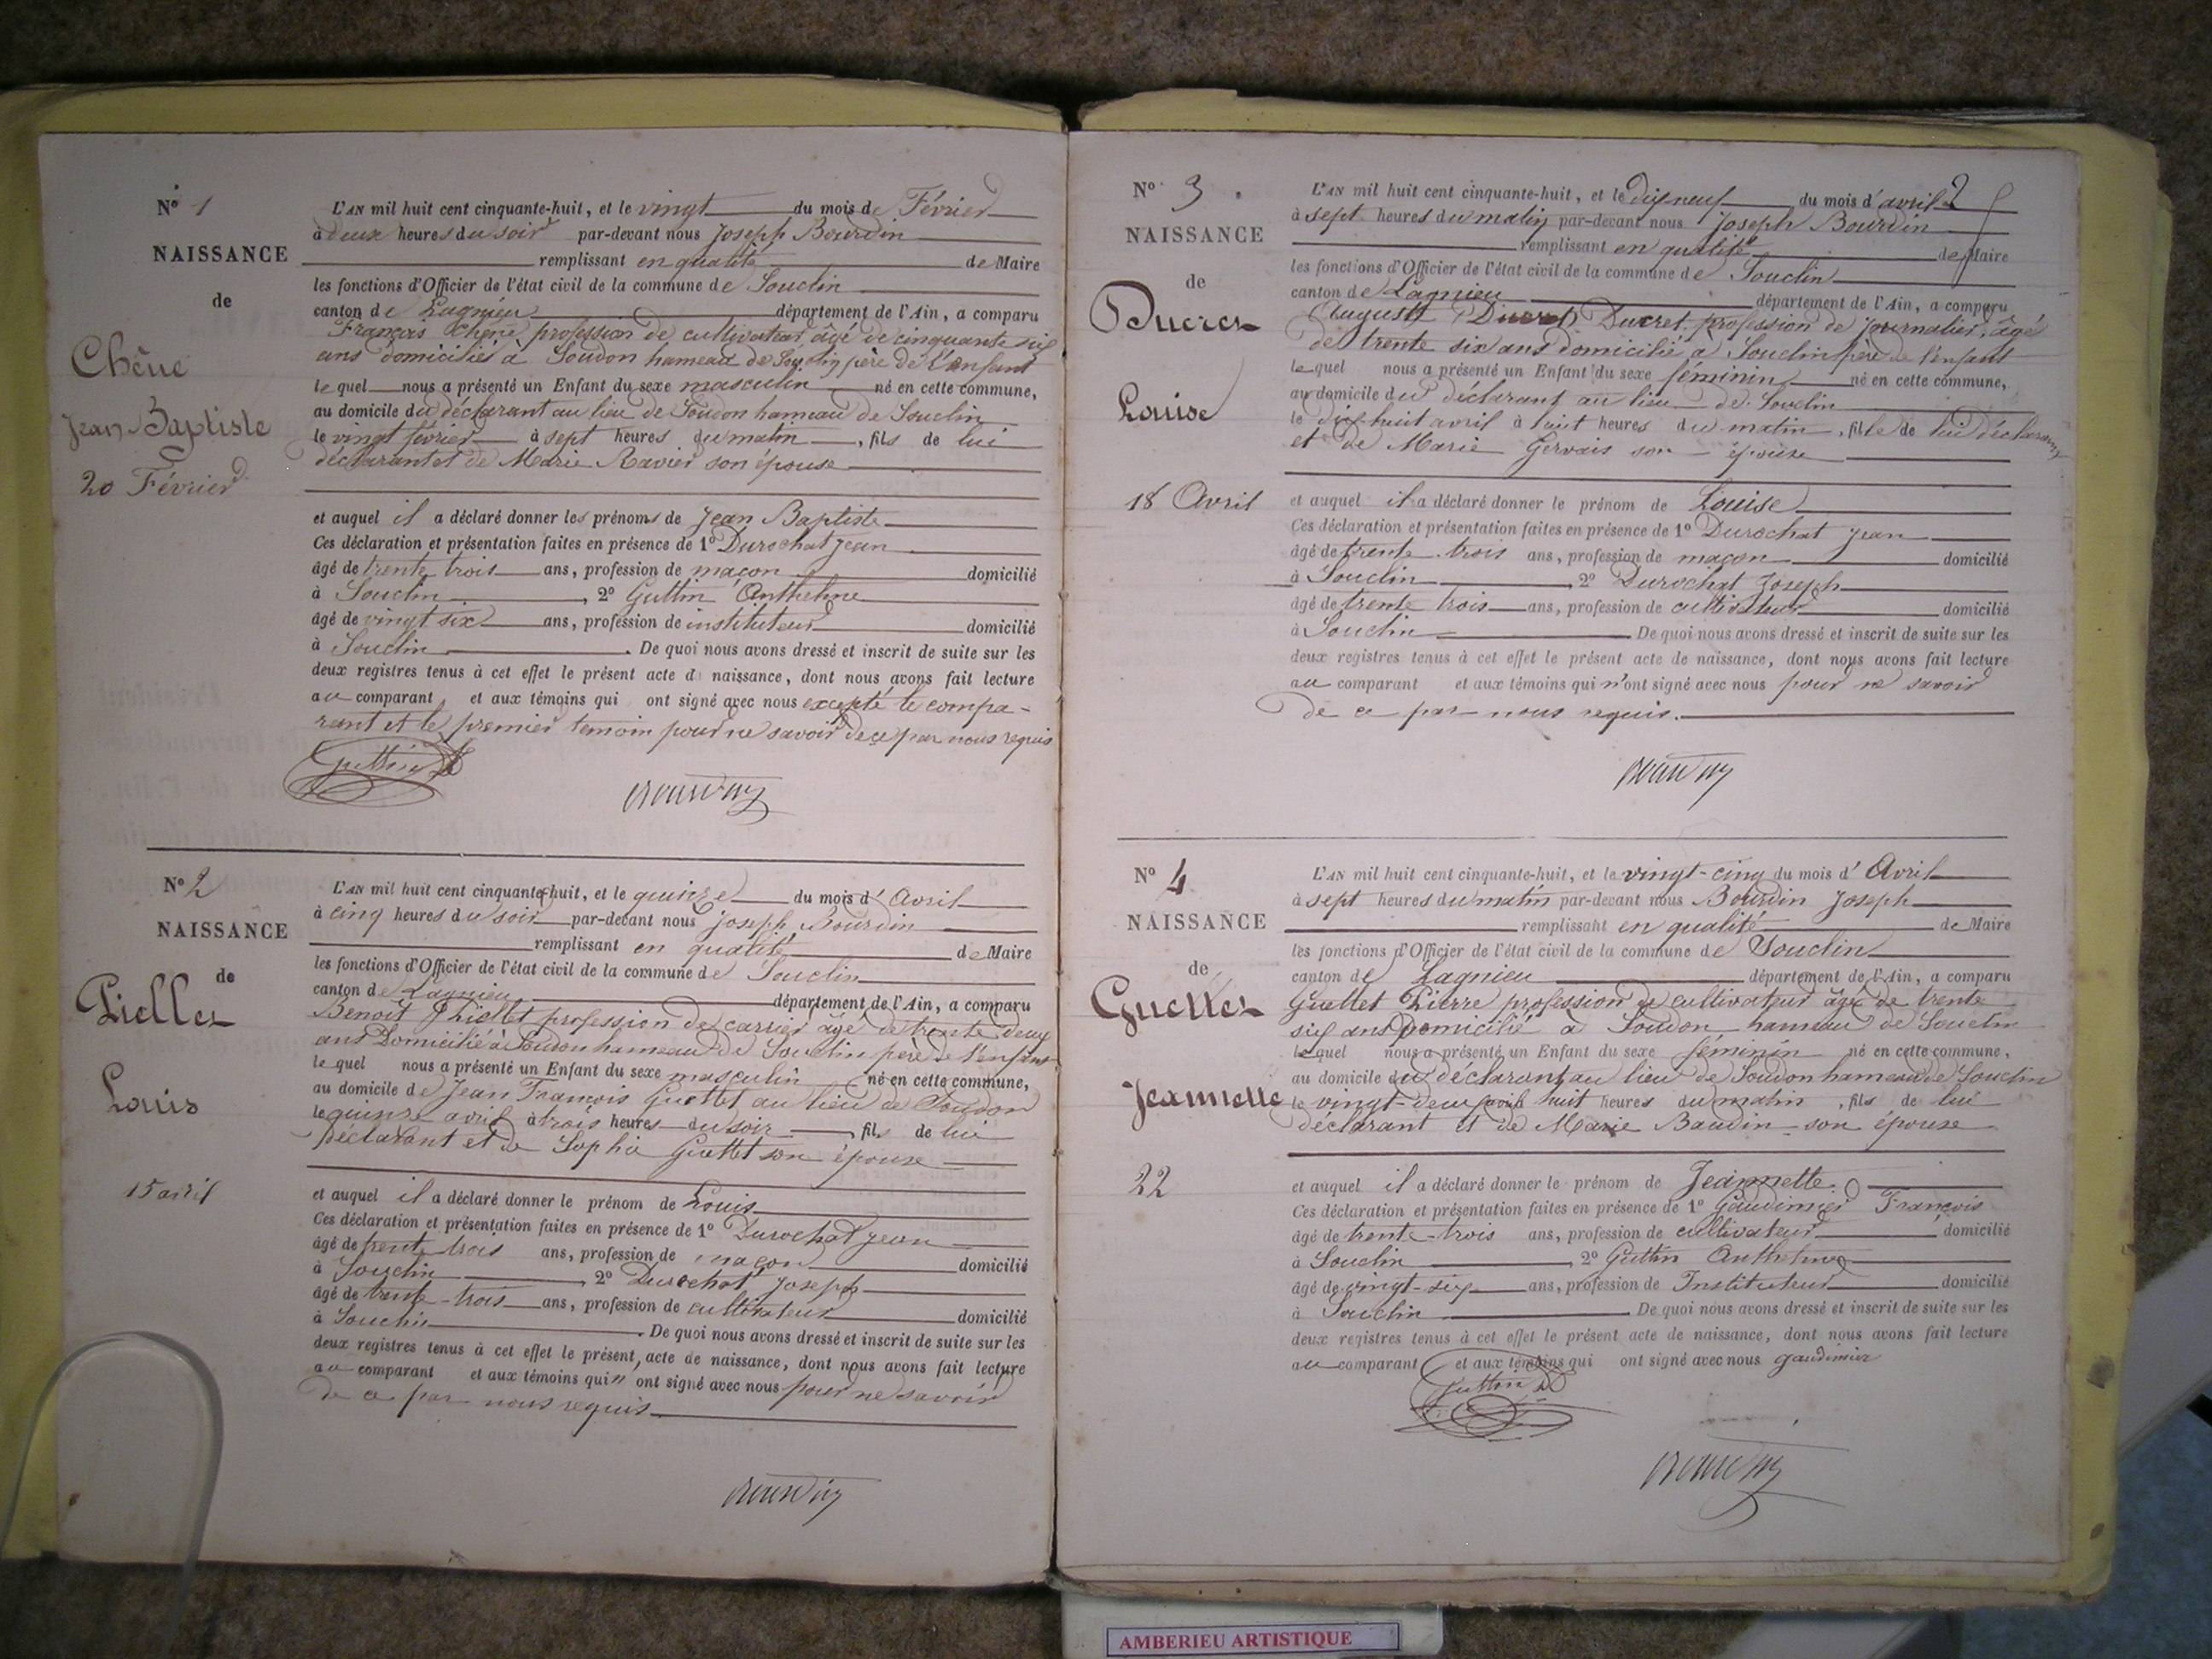 N° 1
NAISSANCE
de
Chêne
Jean-Baptiste
20 Février
L'AN mil huit cent cinquante-huit, et le vingt du mois de Février
à deux heures du soir par-devant nous Joseph Bourdin
remplissant en qualité de Maire
les fonctions d'Officier de l'état civil de la commune de Souclin
canton de Lagnieu département de l'Ain, a comparu
François Chêne profession de cultivateur âgé de cinquante six
ans domicilié à Soudon hameau de Souclin père de l'enfant
lequel nous a présenté un Enfant du sexe masculin né en cette commune,
au domicile du déclarant au lieu de Soudon hameau de Souclin
le vingt février à sept heures du matin, fils de lui
déclarant et de Marie Ravier son épouse
et auquel il a déclaré donner les prénoms de Jean Baptiste
Ces déclaration et présentation faites en présence de 1° Durochat Jean
âgé de trente trois ans, profession de maçon domicilié
à Souclin, 2° Guttin Anthelme
âgé de vingt six ans, profession de instituteur domicilié
à Souclin. De quoi nous avons dressé et inscrit de suite sur les
deux registres tenus à cet effet le présent acte de naissance, dont nous avons fait lecture
au comparant et aux témoins qui ont signé avec nous excepté le compa-
rant et le premier témoin pour ne savoir de ce par nous requis
Guttin A
Bourdin
N° 2
NAISSANCE
de
Piollet
Louis
15 avril
L'AN mil huit cent cinquante-huit, et le quinze du mois d'Avril
à cinq heures du soir par-devant nous Joseph Bourdin
remplissant en qualité de Maire
les fonctions d'Officier de l'état civil de la commune de Souclin
canton de Lagnieu département de l'Ain, a comparu
Benoit Piollet profession de carrier âgé de trente deux
ans Domicilié à Soudon hameau de Souclin père de l'enfant
lequel nous a présenté un Enfant du sexe masculin né en cette commune,
au domicile de Jean François Guettet au lieu de Soudon
le quinze avril à trois heures du soir, fils de lui
déclarant et de Sophie Guettet son épouse
et auquel il a déclaré donner le prénom de Louis
Ces déclaration et présentation faites en présence de 1° Durochat Jean
âgé de trente trois ans, profession de maçon domicilié
à Souclin, 2° Durochat Joseph
âgé de trente-trois ans, profession de cultivateur domicilié
à Souclin. De quoi nous avons dressé et inscrit de suite sur les
deux registres tenus à cet effet le présent acte de naissance, dont nous avons fait lecture
au comparant et aux témoins qui n'ont signé avec nous pour ne savoir
de ce par nous requis.
Bourdin
2
N° 3.
NAISSANCE
de
Ducret
Louise
18 Avril
L'AN mil huit cent cinquante-huit, et le dix neuf du mois d'avril
à sept heures du matin par-devant nous Joseph Bourdin
remplissant en qualité de Maire
les fonctions d'Officier de l'état civil de la commune de Souclin
canton de Lagnieu département de l'Ain, a comparu
Auguste Ducret Ducret profession de journalier, âgé
de trente six ans domicilié à Souclin père de l'enfant
lequel nous a présenté un Enfant du sexe féminin né en cette commune,
au domicile du déclarant au lieu de Souclin
le dix huit avril à huit heures du matin, fille de lui déclarant
et de Marie Gervais son épouse
et auquel il a déclaré donner le prénom de Louise
Ces déclaration et présentation faites en présence de 1° Durochat Jean
âgé de trente trois ans, profession de maçon domicilié
à Souclin, 2° Durochat Joseph
âgé de trente trois ans, profession de cultivateur domicilié
à Souclin. De quoi nous avons dressé et inscrit de suite sur les
deux registres tenus à cet effet le présent acte de naissance, dont nous avons fait lecture
au comparant et aux témoins qui n'ont signé avec nous pour ne savoir
de ce par nous requis.
Bourdin
N° 4
NAISSANCE
de
Guettet
Jeannette
22
L'AN mil huit cent cinquante-huit, et le vingt-cinq du mois d'Avril
à sept heures du matin par-devant nous Bourdin Joseph
remplissant en qualité de Maire
les fonctions d'Officier de l'état civil de la commune de Souclin
canton de Lagnieu département de l'Ain, a comparu
Guettet Pierre profession de cultivateur âgé de trente
six ans Domicilié à Soudon hameau de Souclin
lequel nous a présenté un Enfant du sexe féminin né en cette commune,
au domicile du déclarant au lieu de Soudon hameau de Souclin
le vingt-deux avril huit heures du matin, fils de lui
déclarant et de Marie Baudin son épouse
et auquel il a déclaré donner le prénom de Jeannette
Ces déclaration et présentation faites en présence de 1° Gaudimier François
âgé de trente-trois ans, profession de cultivateur domicilié
à Souclin, 2° Guttin Anthelme
âgé de vingt-six ans, profession de Instituteur domicilié
à Souclin. De quoi nous avons dressé et inscrit de suite sur les
deux registres tenus à cet effet le présent acte de naissance, dont nous avons fait lecture
au comparant et aux témoins qui ont signé avec nous gaudimier
Guttin A
Bourdin
AMBERIEU ARTISTIQUE